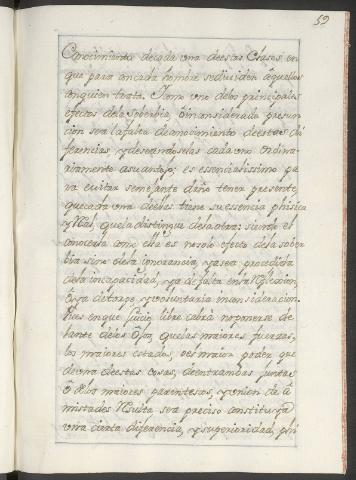 59
Conocimiento de cada una de estas Clases, en
que para con cada hombre se dividen aquellos
con quien trata. Como uno de los principales
efectos de la Soberbia, ò inconsiderada presun-
cion sea la falta de conocimiento de estas di
ferencias, y deseandoselas cada uno ordina-
riamente asu antojo; es essencialissimo pa
ra evitar semejante daño tener presente,
que cada una de ellas tiene su essencia phisica
y Real, que la distingue de las otras; siendo el
conocerla como ella es no solo efecto de la sober
bia sino de la ignorancia, ya sea procedida
de la incapacidad, ya de falta en la Reflexion,
ò ya de torpe, y voluntaria inconsideracion.
Pues en que juicio libre cabrà no ponerse de
lante de los Ojos, que las maiores fuerzas,
los maiores estados, ò el maior poder que
de una de estas cosas, ò de entrambas juntas
ò de los maiores parentescos, y union de A
mistades Resulta sea preciso constituya
una cierta diferencia, y superioridad, phi